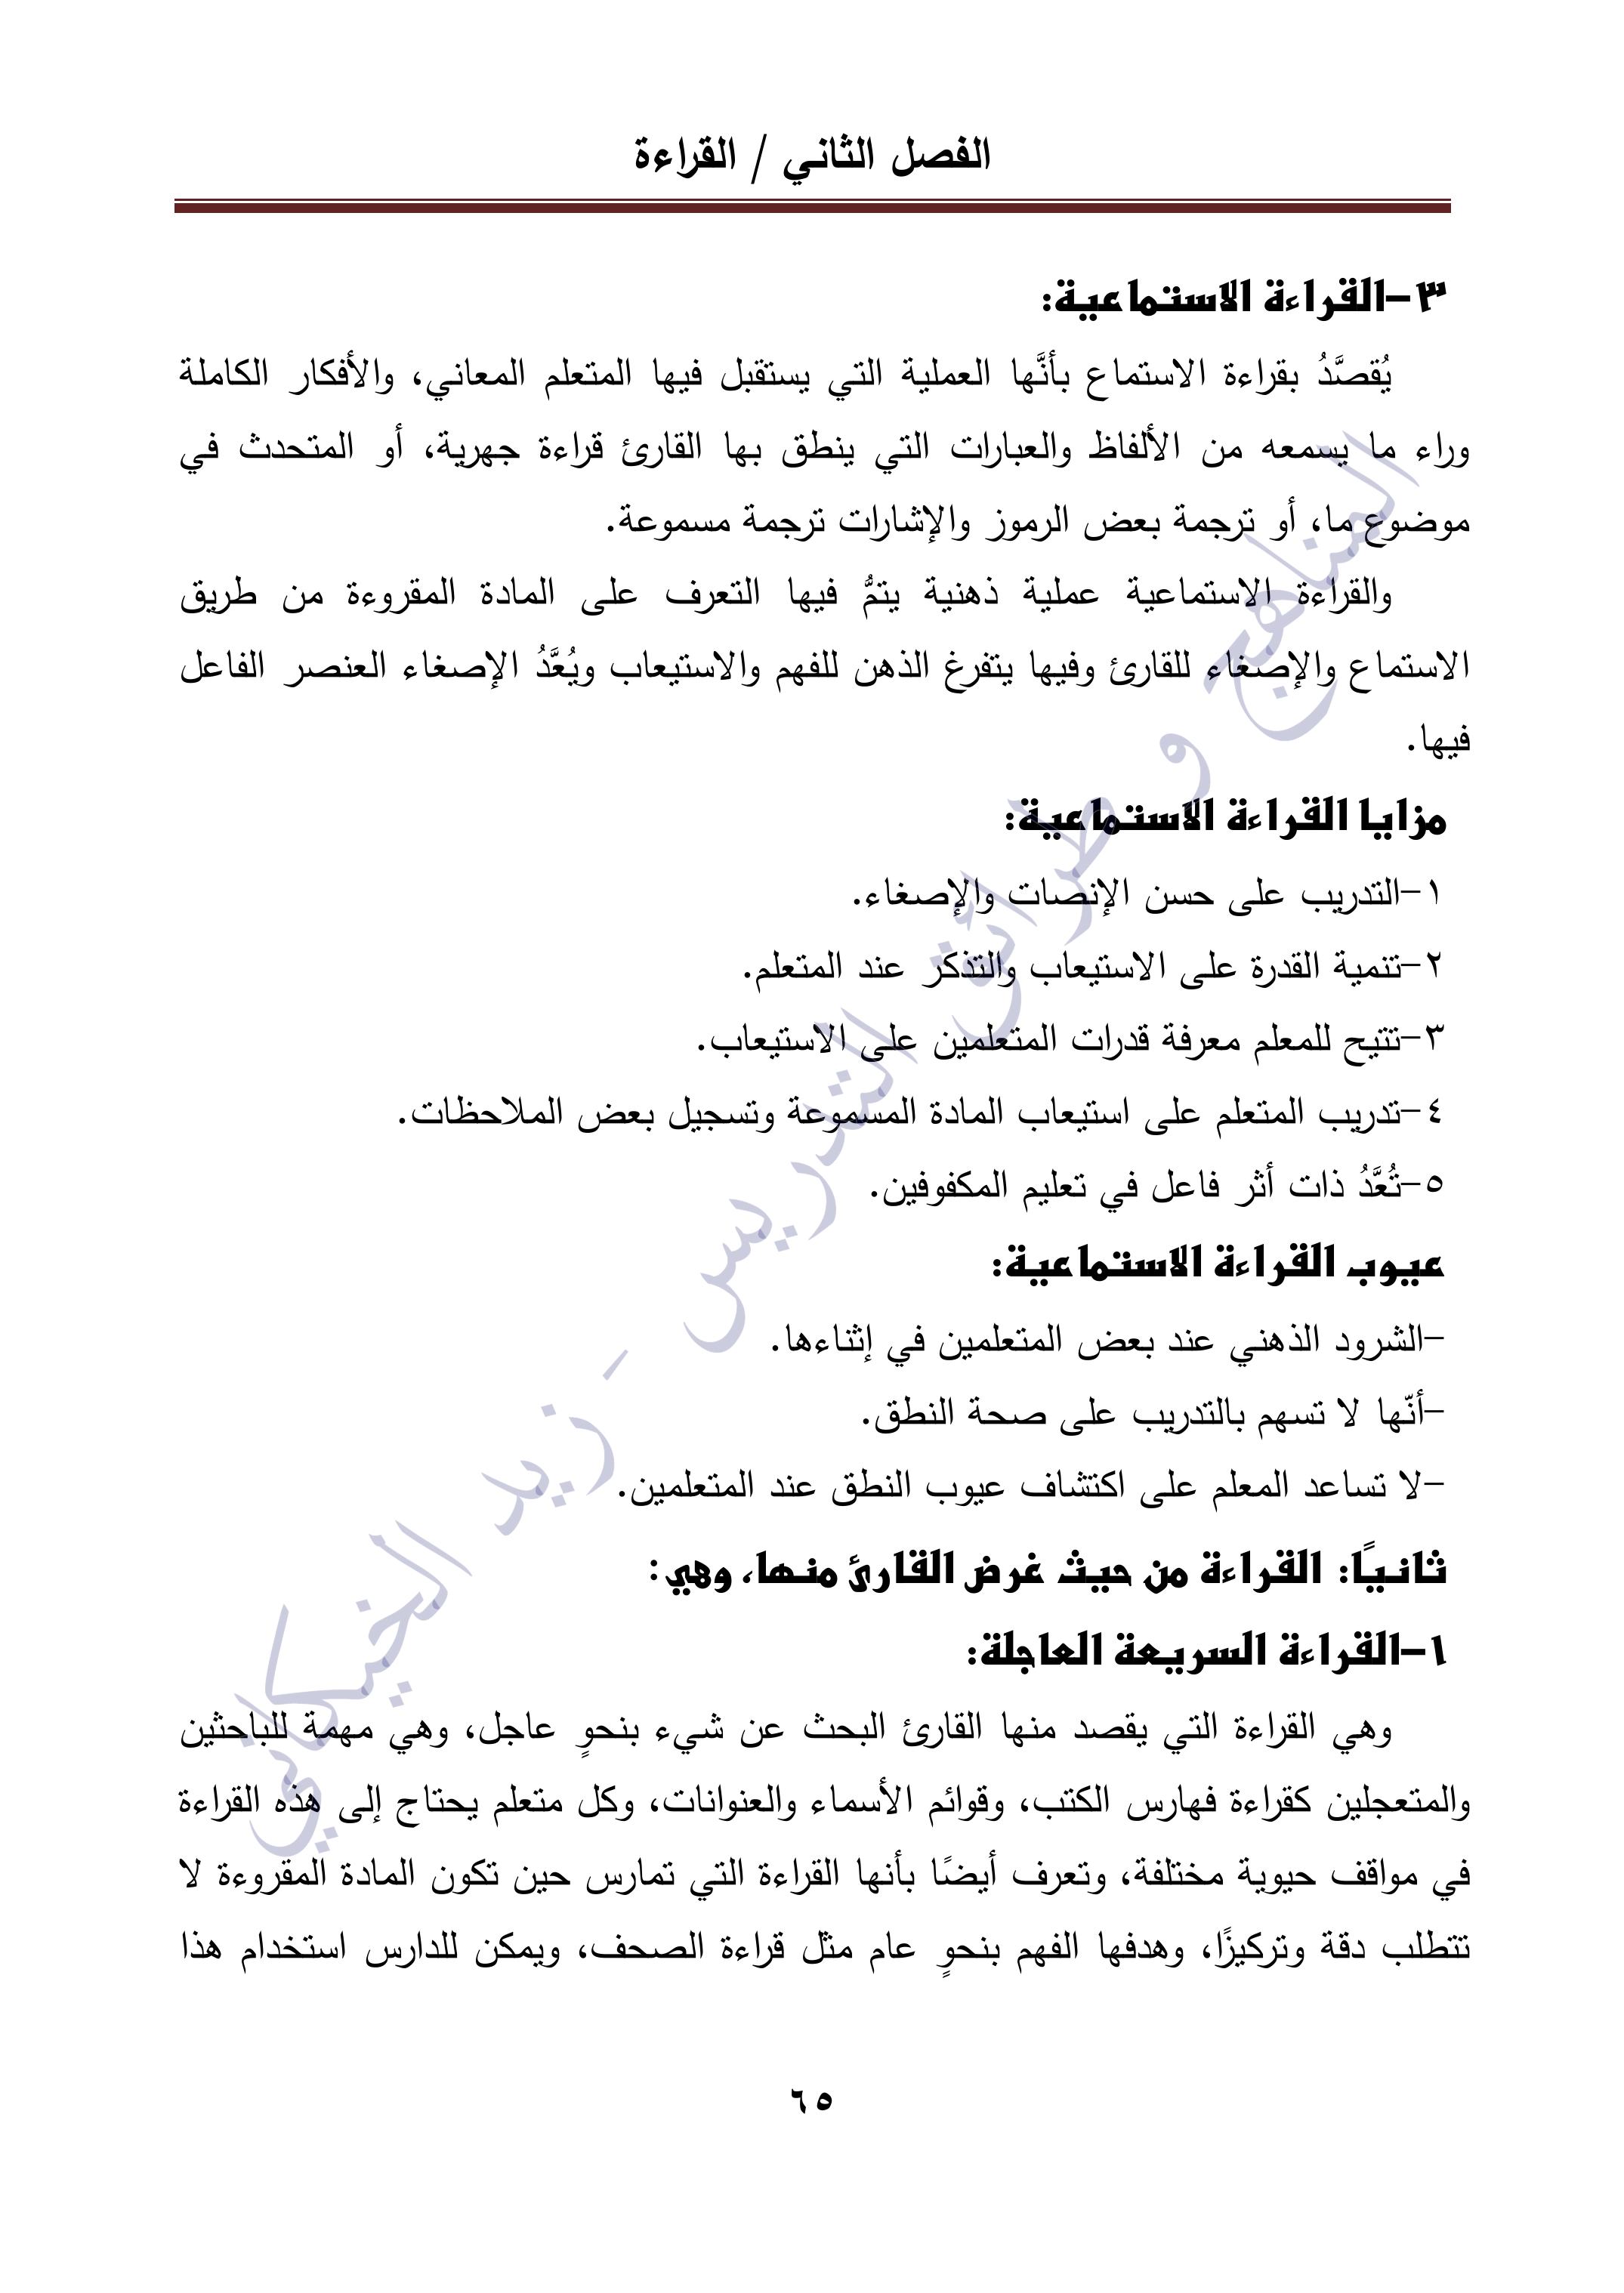 الفصل الثاني / القراءة
٣-القراءة الاستماعية:
يُقصَّدُ بقراءة الاستماع بأنَّها العملية التي يستقبل فيها المتعلم المعاني، والأفكار الكاملة
وراء ما يسمعه من الألفاظ والعبارات التي ينطق بها القارئ قراءة جهرية، أو المتحدث في
موضوع ما، أو ترجمة بعض الرموز والإشارات ترجمة مسموعة.
والقراءة الاستماعية عملية ذهنية يتمُّ فيها التعرف على المادة المقروءة من طريق
الاستماع والإصغاء للقارئ وفيها يتفرغ الذهن للفهم والاستيعاب ويُعَّدُ الإصغاء العنصر الفاعل
فيها.
مزايا القراءة الاستماعية:
١-التدريب على حسن الإنصات والإصغاء.
٢-تنمية القدرة على الاستيعاب والتذكر عند المتعلم.
٣-تتيح للمعلم معرفة قدرات المتعلمين على الاستيعاب.
٤-تدريب المتعلم على استيعاب المادة المسموعة وتسجيل بعض الملاحظات.
٥-تُعَّدُ ذات أثر فاعل في تعليم المكفوفين.
عيوب القراءة الاستماعية:
-الشرود الذهني عند بعض المتعلمين في إثناءها.
-أنّها لا تسهم بالتدريب على صحة النطق.
-لا تساعد المعلم على اكتشاف عيوب النطق عند المتعلمين.
ثانيًا: القراءة من حيث غرض القارئ منها، وهي:
١-القراءة السريعة العاجلة:
وهي القراءة التي يقصد منها القارئ البحث عن شيء بنحوٍ عاجل، وهي مهمة للباحثين
والمتعجلين كقراءة فهارس الكتب، وقوائم الأسماء والعنوانات، وكل متعلم يحتاج إلى هذه القراءة
في مواقف حيوية مختلفة، وتعرف أيضًا بأنها القراءة التي تمارس حين تكون المادة المقروءة لا
تتطلب دقة وتركيزًا، وهدفها الفهم بنحوٍ عام مثل قراءة الصحف، ويمكن للدارس استخدام هذا
٦٥
المناهج و طرائق التدريس - زيد الخيكاني